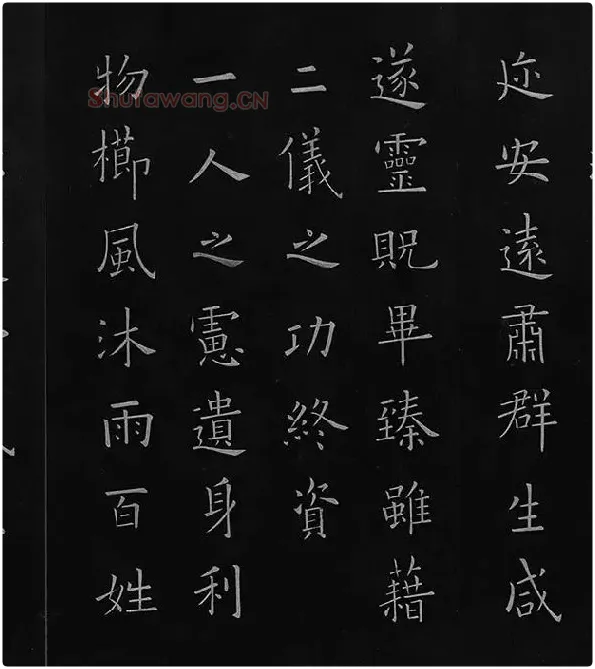 迩安遠肅群生咸
遂靈貺畢臻雖藉
二儀之功終資
一人之慮遺身利
物櫛風沐雨百姓
Shufawang.CN